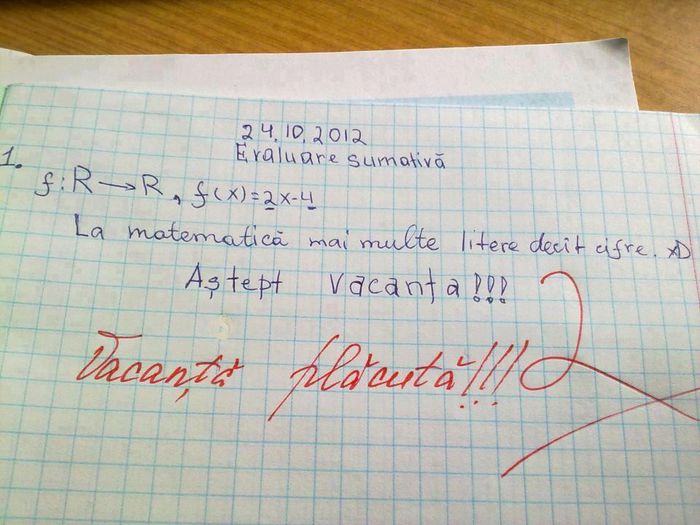 24.10.2012
Evaluare sumativă
1.
f: R → R, f(x)=2x-4
La matematică mai multe litere decit cifre. XD
Aștept vacanța!!!
Vacanță plăcută!!! 2